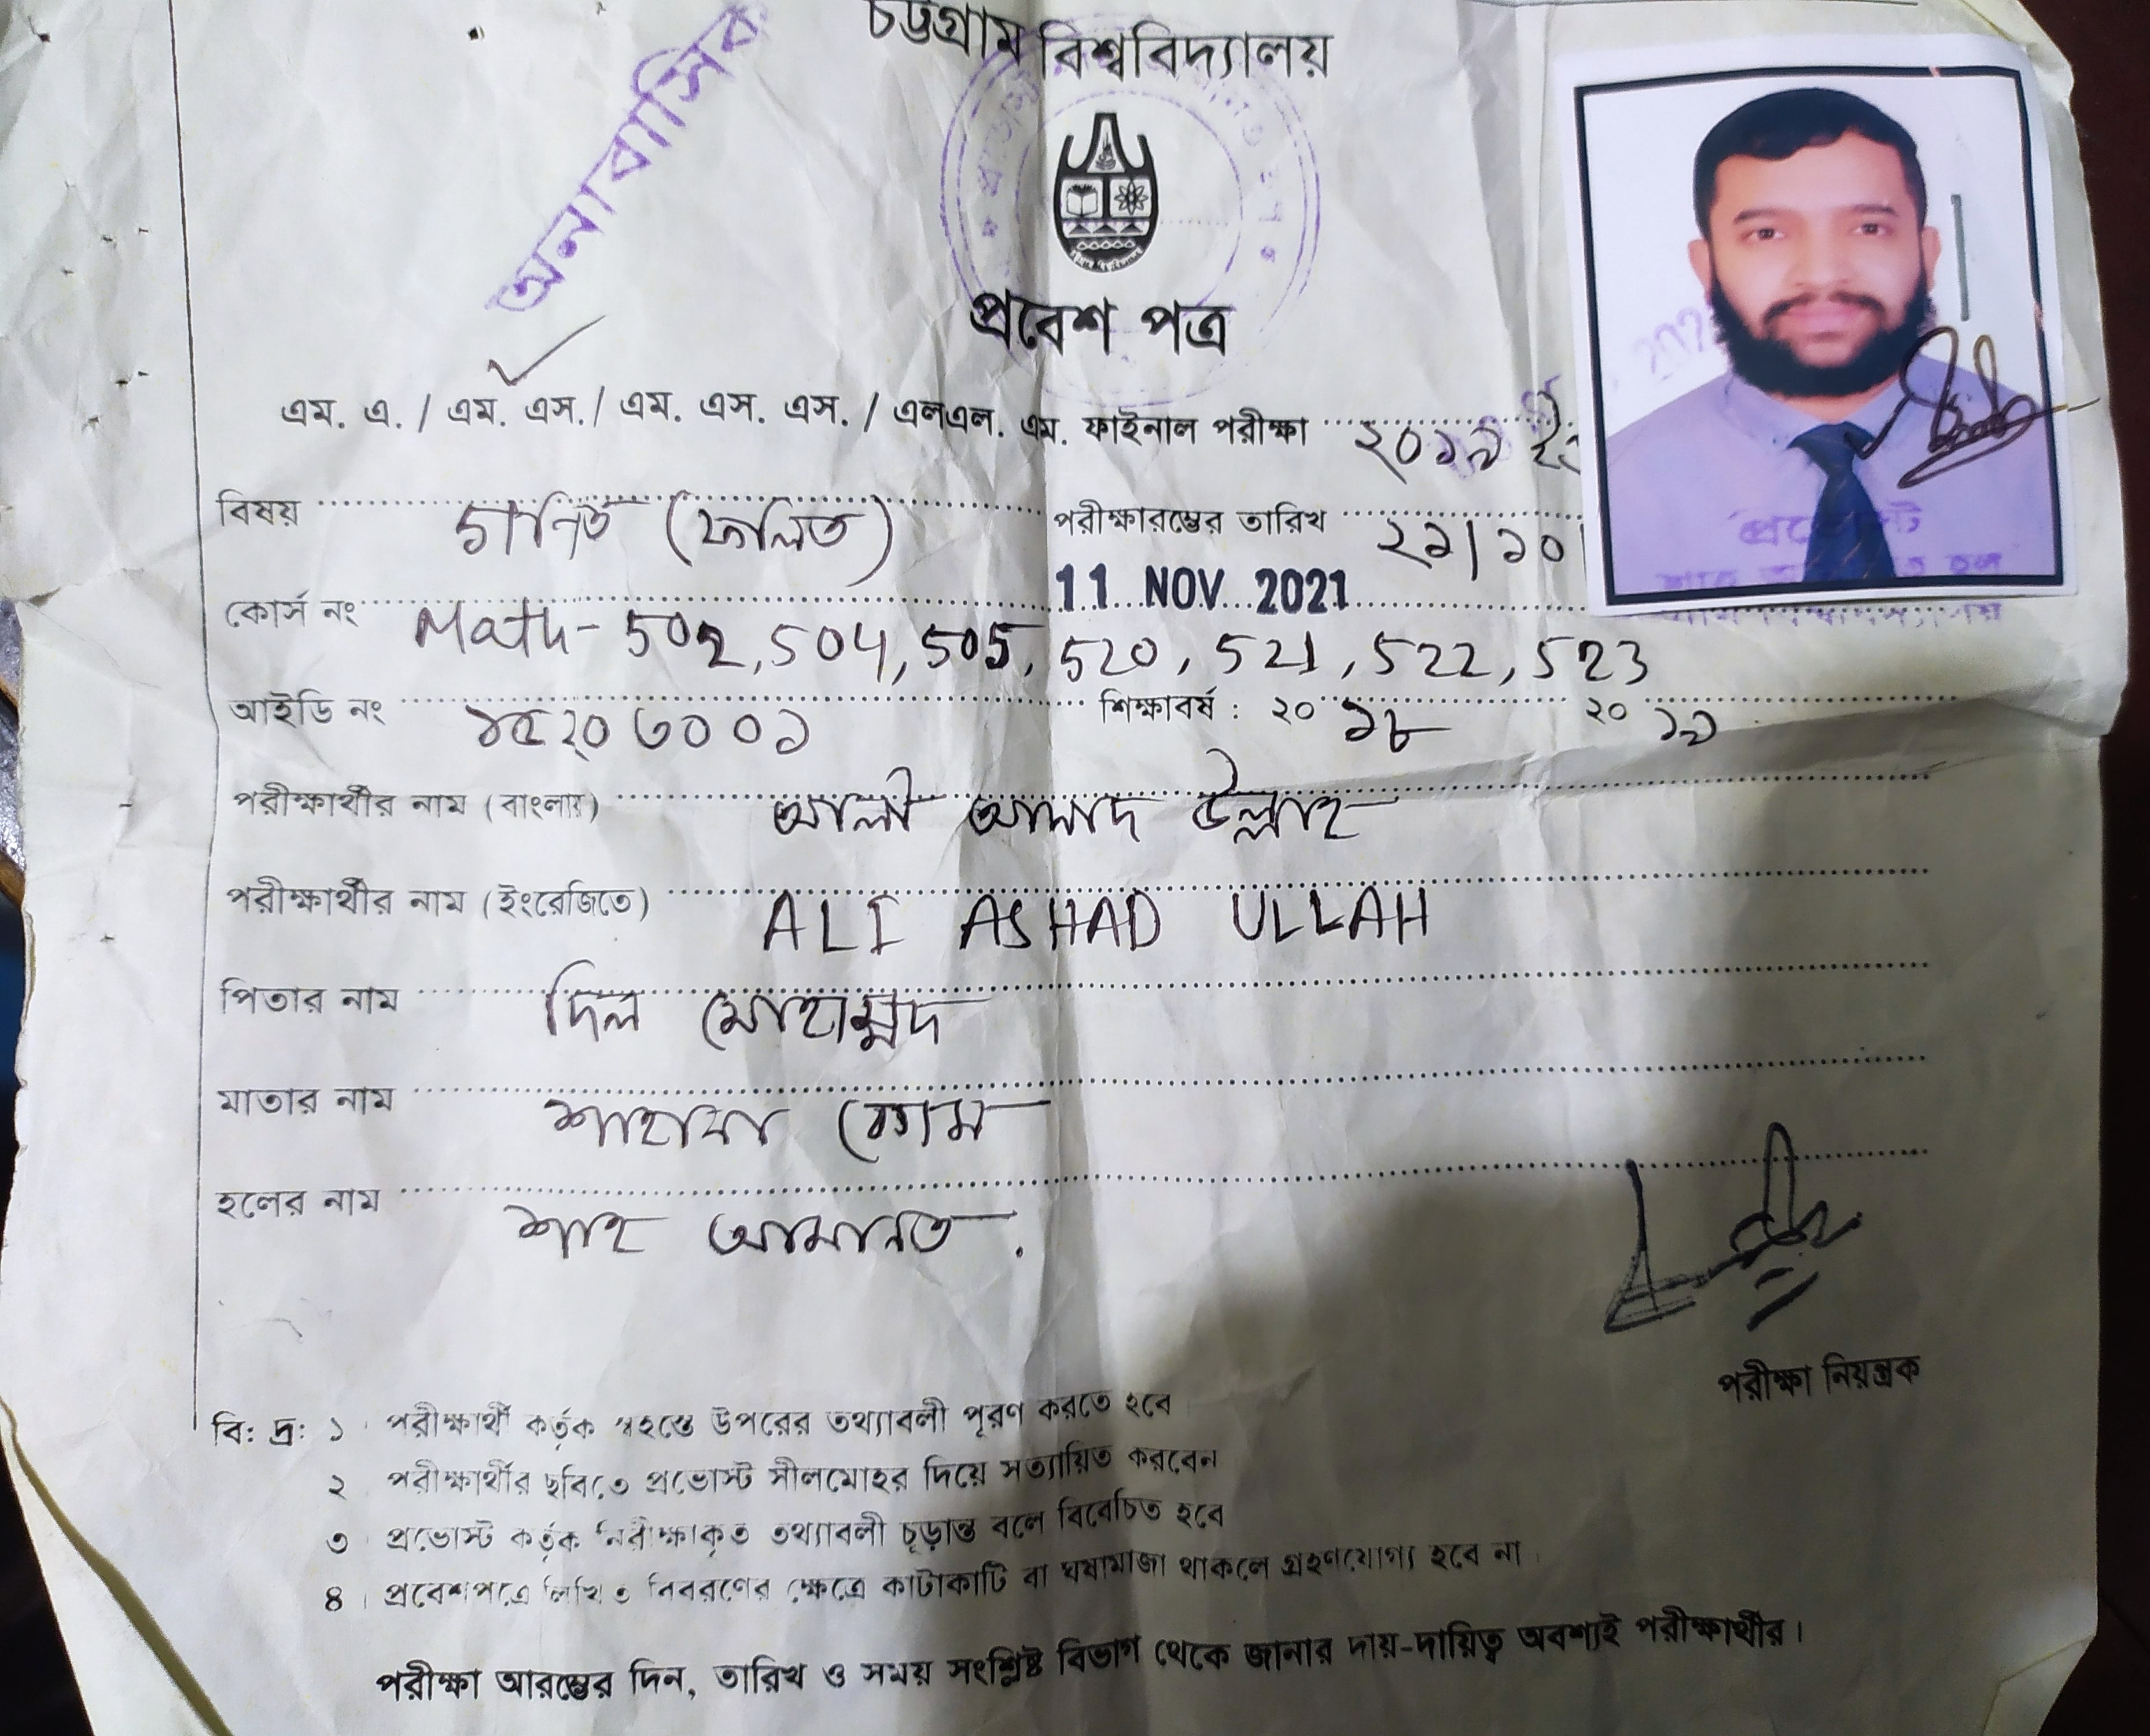 চট্টগ্রাম বিশ্ববিদ্যালয়
অনাবাসিক
প্রবেশ পত্র
এম. এ. / এম. এস. / এম. এস. এস. / এলএল. এম. ফাইনাল পরীক্ষা ২০১৯
বিষয় গণিত (ফলিত) পরীক্ষারম্ভের তারিখ ২১/১০
11 NOV 2021
কোর্স নং Math- 502, 504, 505, 520, 521, 522, 523
আইডি নং ১৫২০৩০০১ শিক্ষাবর্ষ : ২০১৮ ২০১৯
পরীক্ষার্থীর নাম (বাংলায়) আলী আসাদ উল্লাহ
পরীক্ষার্থীর নাম (ইংরেজিতে) ALI ASHAD ULLAH
পিতার নাম দিল মোহাম্মদ
মাতার নাম শাহানা বেগম
হলের নাম শাহ আমানত .
পরীক্ষা নিয়ন্ত্রক
বি: দ্র: ১। পরীক্ষার্থী কর্তৃক স্বহস্তে উপরের তথ্যাবলী পূরণ করতে হবে
২ পরীক্ষার্থীর ছবিতে প্রভোস্ট সীলমোহর দিয়ে সত্যায়িত করবেন
৩ প্রভোস্ট কর্তৃক নিরীক্ষাকৃত তথ্যাবলী চূড়ান্ত বলে বিবেচিত হবে
৪। প্রবেশপত্রে লিখিত বিবরণের ক্ষেত্রে কাটাকাটি বা ঘষামাজা থাকলে গ্রহণযোগ্য হবে না।
পরীক্ষা আরম্ভের দিন, তারিখ ও সময় সংশ্লিষ্ট বিভাগ থেকে জানার দায়-দায়িত্ব অবশ্যই পরীক্ষার্থীর।